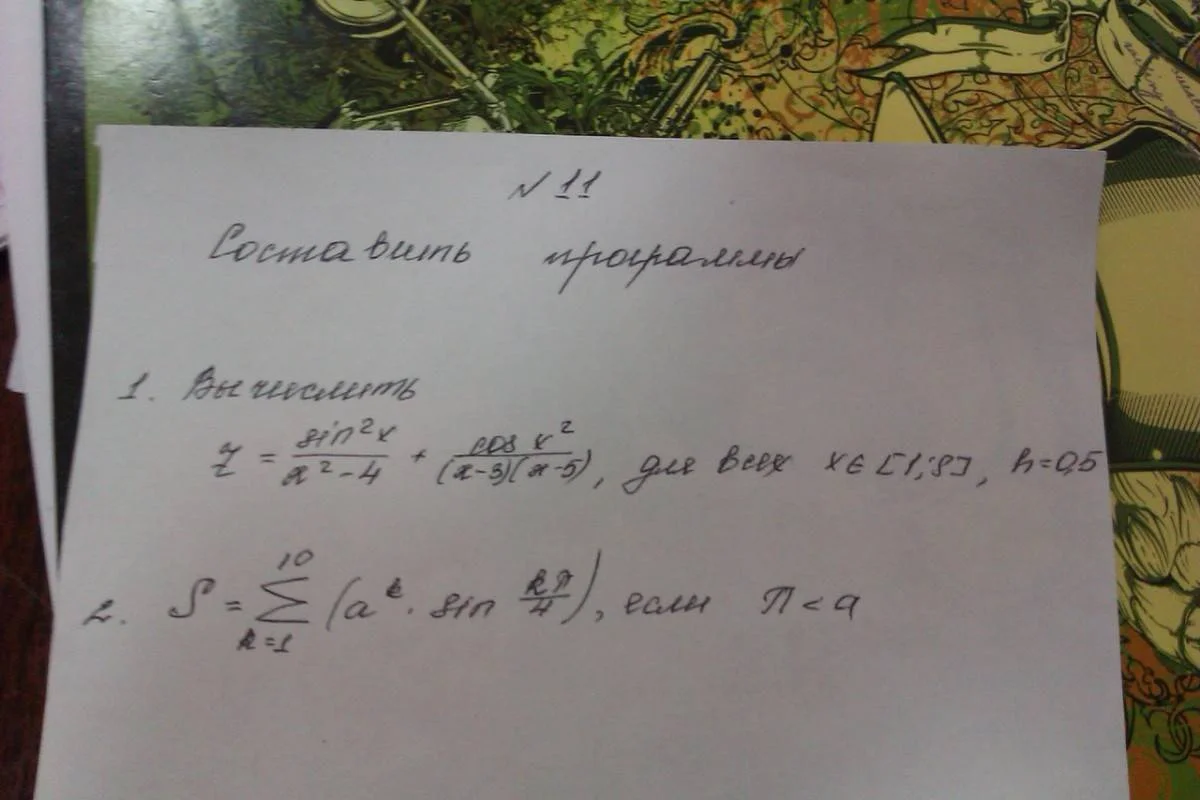 N 11
Составить программы
1. Вычислить
z = sin²x / (x² - 4) + cos x² / ((x-3)(x-5)), для всех x ∈ [1; 8], h = 0,5
2. S = ∑_{k=1}^{10} (a^k · sin kπ/4), если π < a